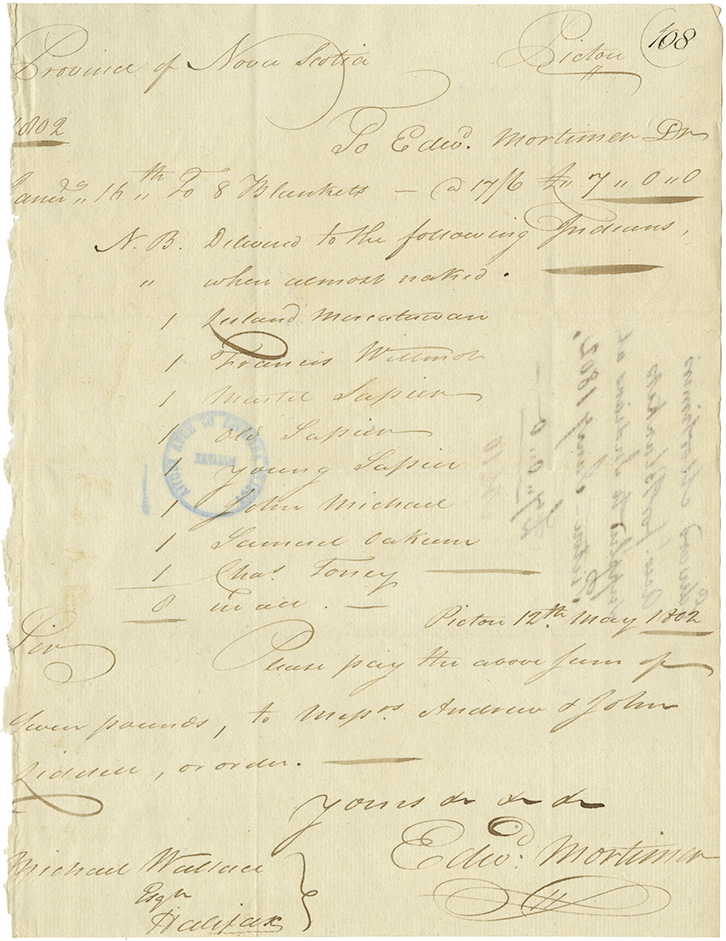 108
Province of Nova Scotia Pictou
1802
To Edwd. Mortimer Dr
Januy. 16th To 8 Blankets — @ 17/6 £ 7 " 0 " 0
N.B. Delivered to the following Indians,
" when almost naked.
1
1 Francis Willmot
1 Martil Sapier
1 Old Sapier
1 Young Sapier
1 John Michael
1 Samuel Oakum
1 Chas. Toney
8 in all. —
Pictou 12th. May 1802
Sir
Please pay the above sum of
Seven pounds, to Messrs. Andrew & John
Liddell, or order.
Yours &c &c &c
Edwd. Mortimer
Michael Wallace
Esqr
Halifax